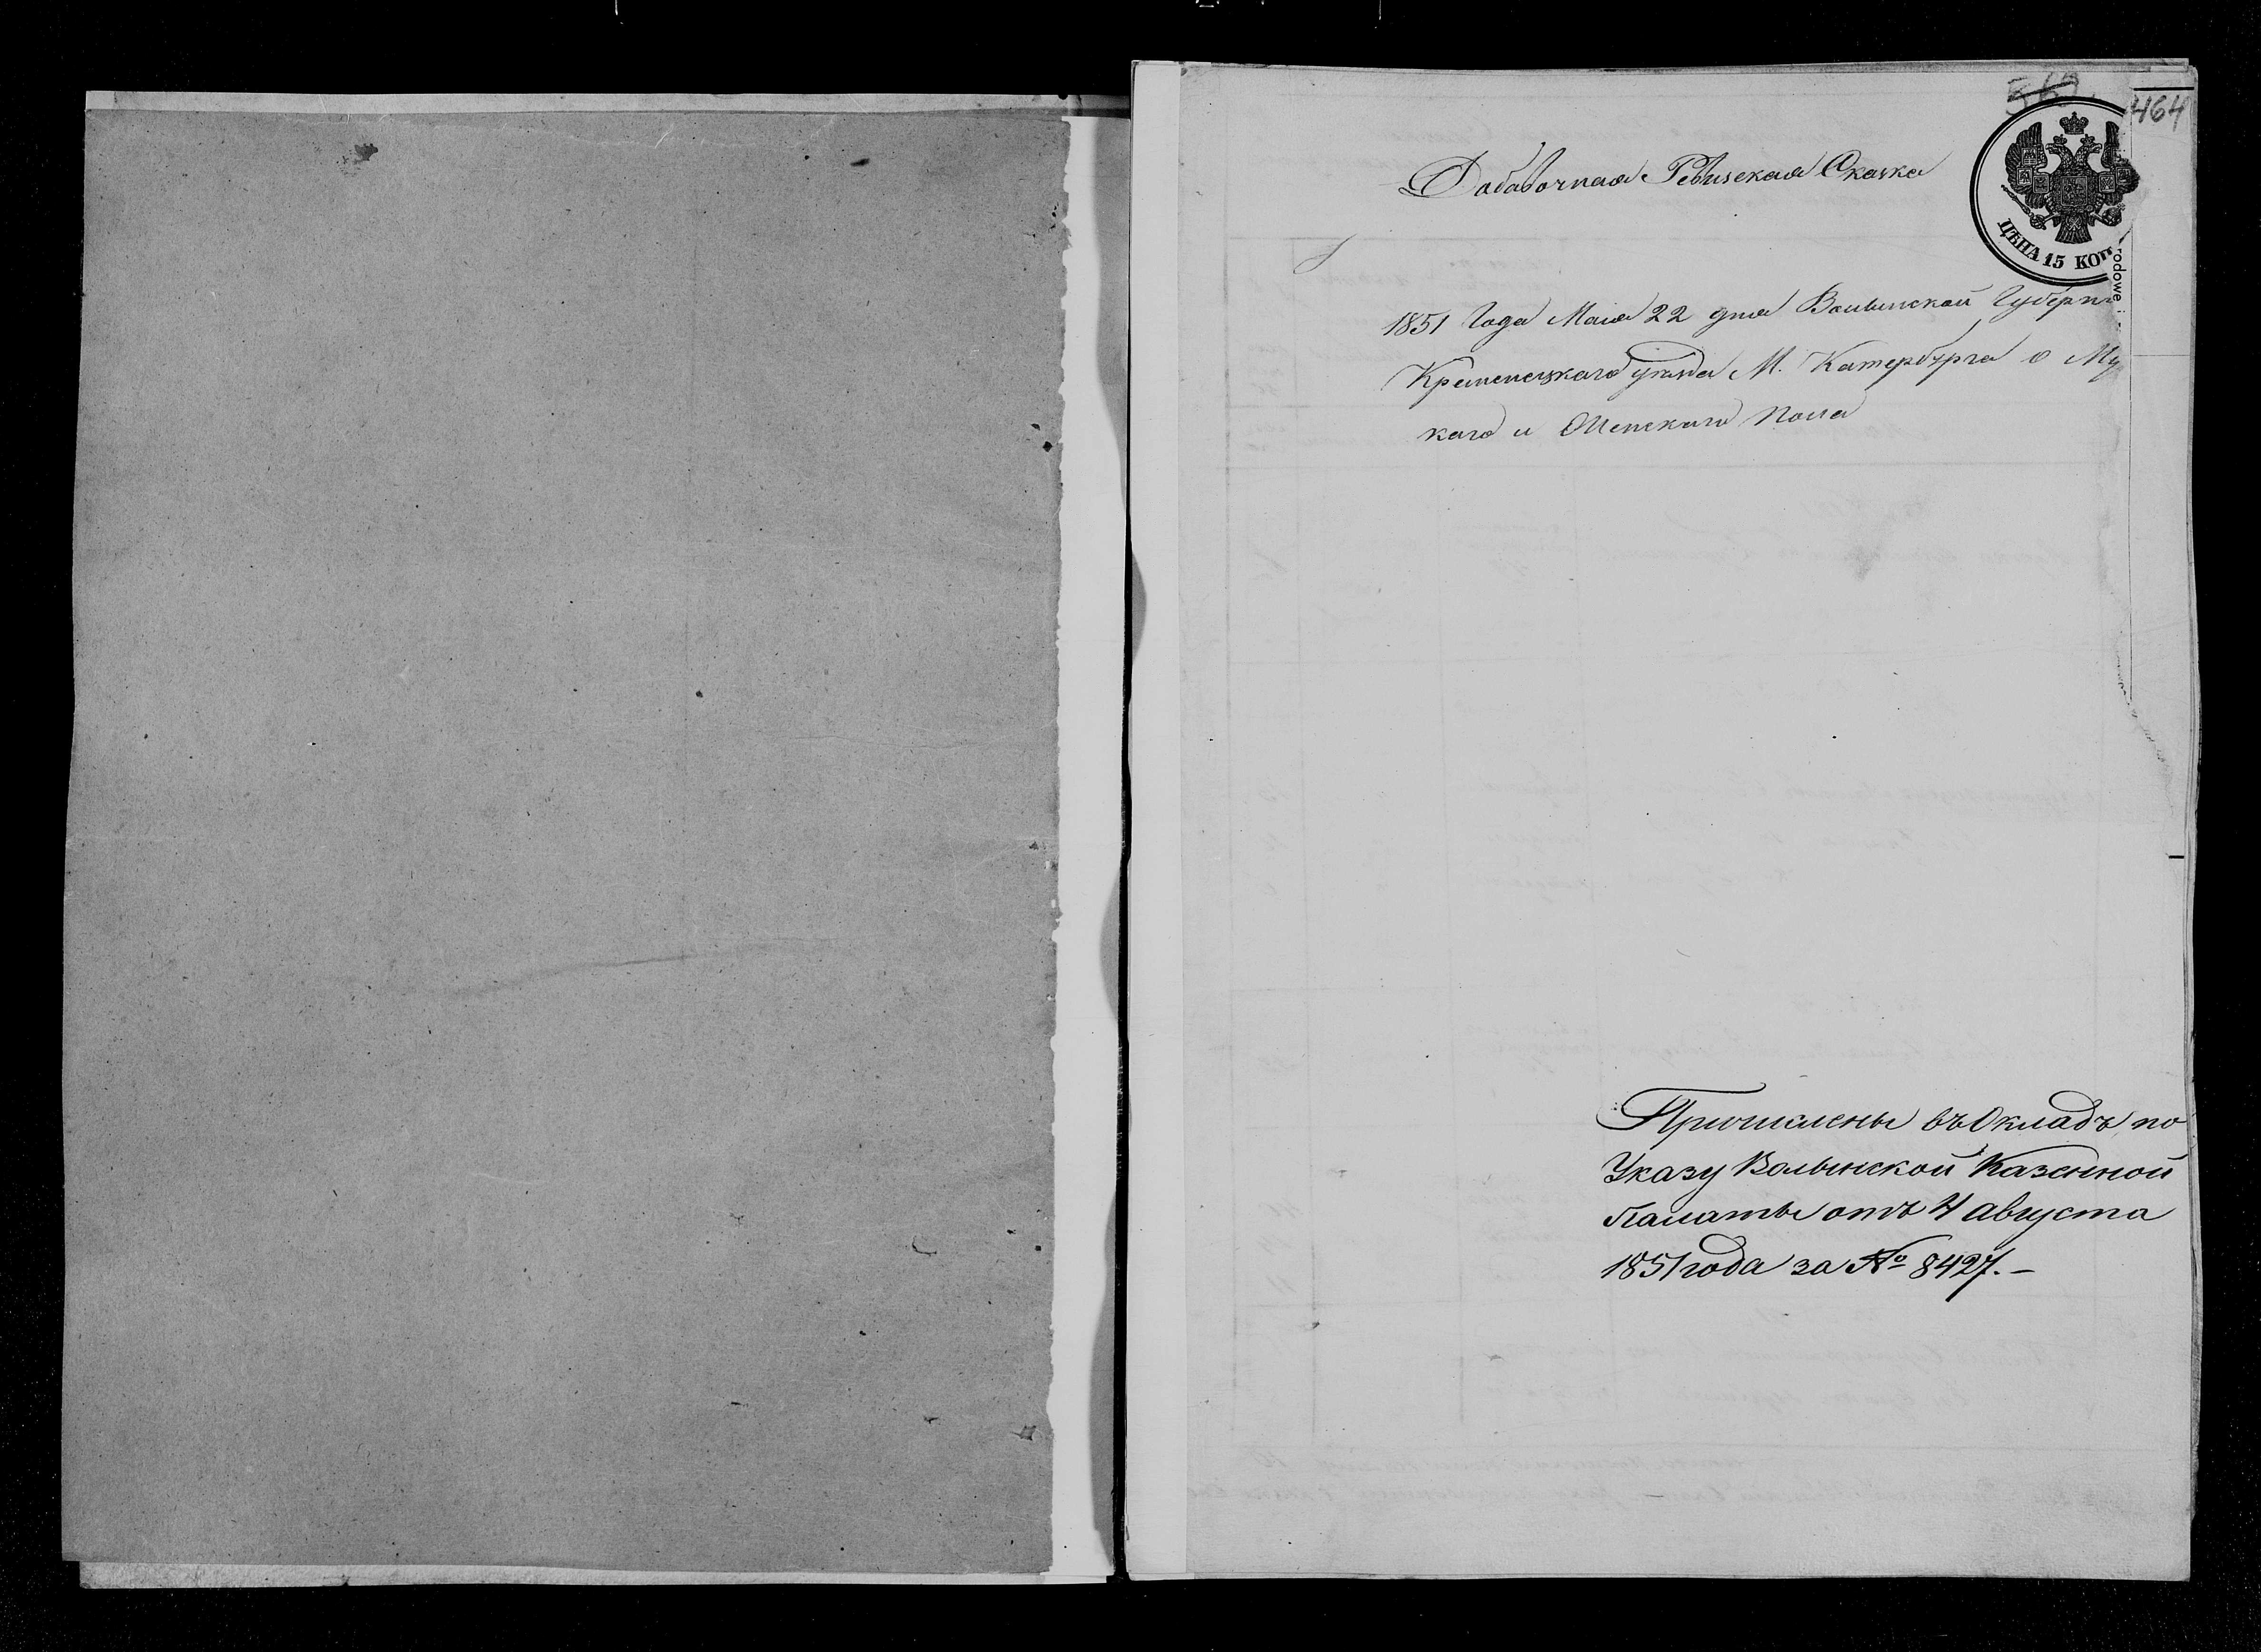 562.
464
Добавочная Ревизская Сказка
ЦѢНА 15 КОП
rodowe
1851 Года Маия 22 дня Волынской Губерни
Кременецкаго уѣзда М. Катербурга о Му
каго и Женскаго Пола
Причислены въ Окладъ по
Указу Волынской Казенной
Палаты отъ 4 Августа
1851 года за № 8427.–